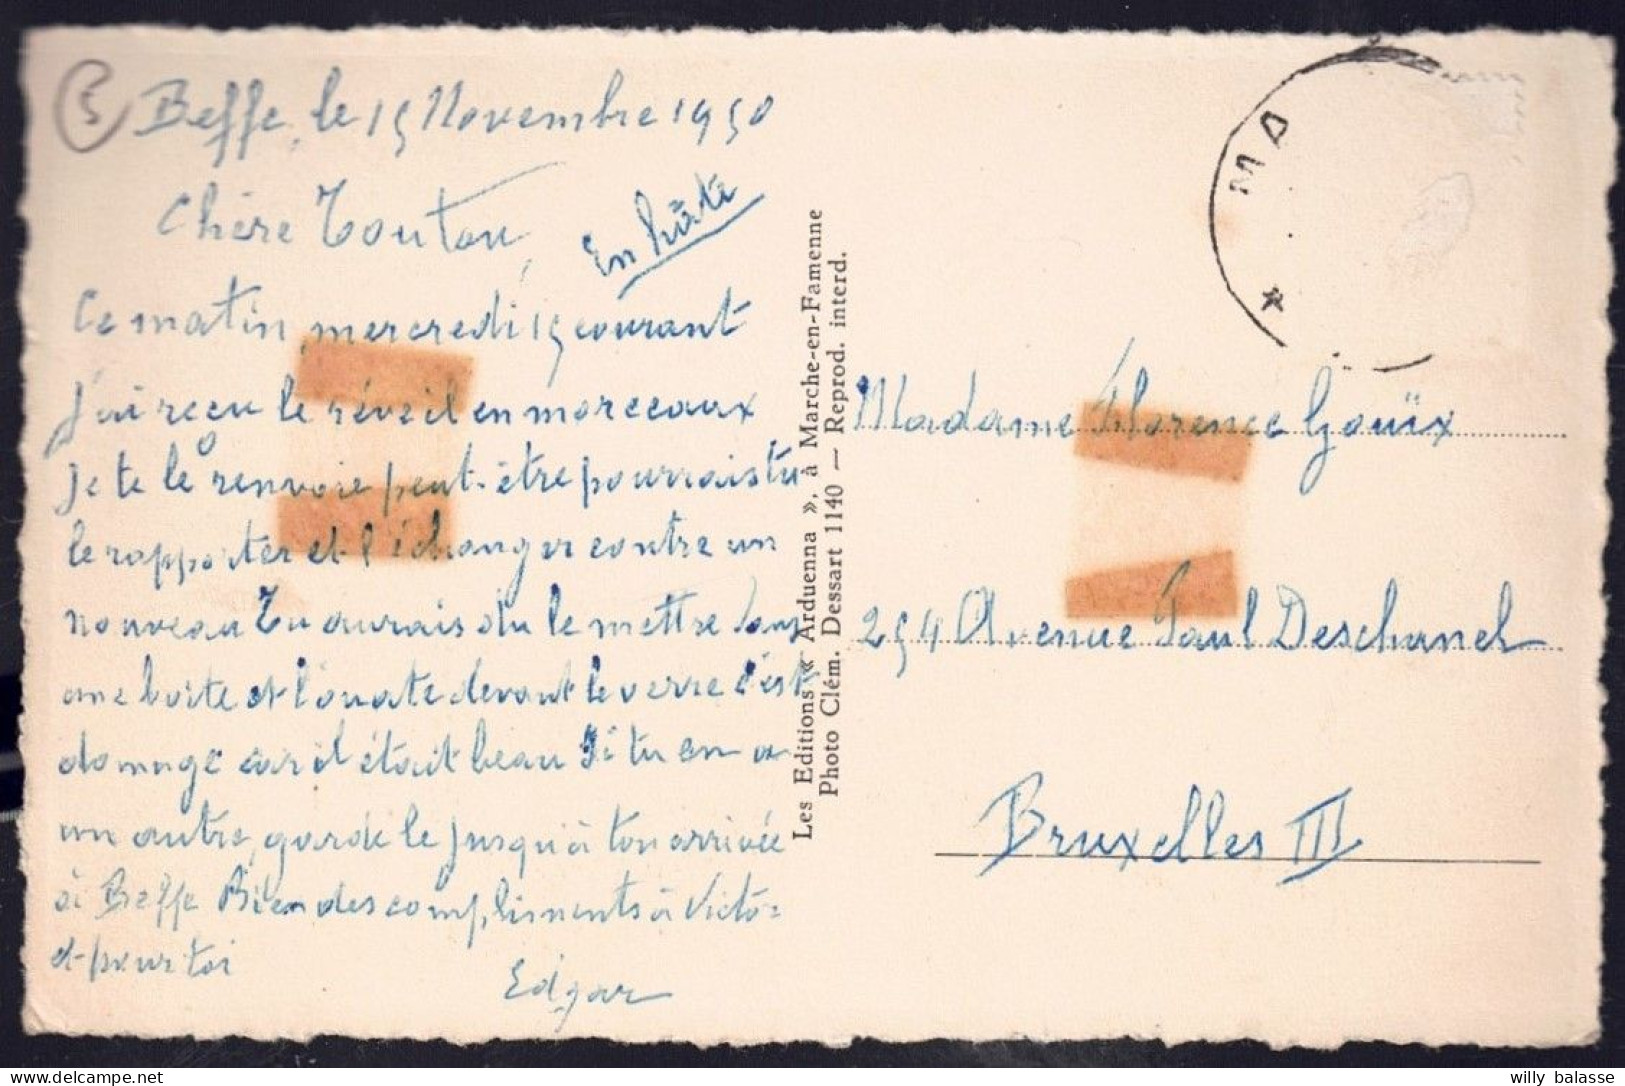 5
Beffe, le 15 Novembre 1950
Chère Touton
En hâte
Ce matin, mercredi 15 courant
j'ai reçu le réveil en morceaux
Je te le renvoie peut-être pourrais tu
le rapporter et l'échanger contre un
nouveau Tu aurais du le mettre dans
une boite et l'ouate devant le verre c'est
domage car il était beau Si tu en a
un autre, garde le jusqu'à ton arrivée
à Beffe Bien des compliments à Victor
et pour toi
Edgar
Les Editions « Arduenna », à Marche-en-Famenne
Photo Clém. Dessart 1140 — Reprod. interd.
MA
Madame Florence Goüix
254 Avenue Paul Deschanel
Bruxelles III
willy balasse